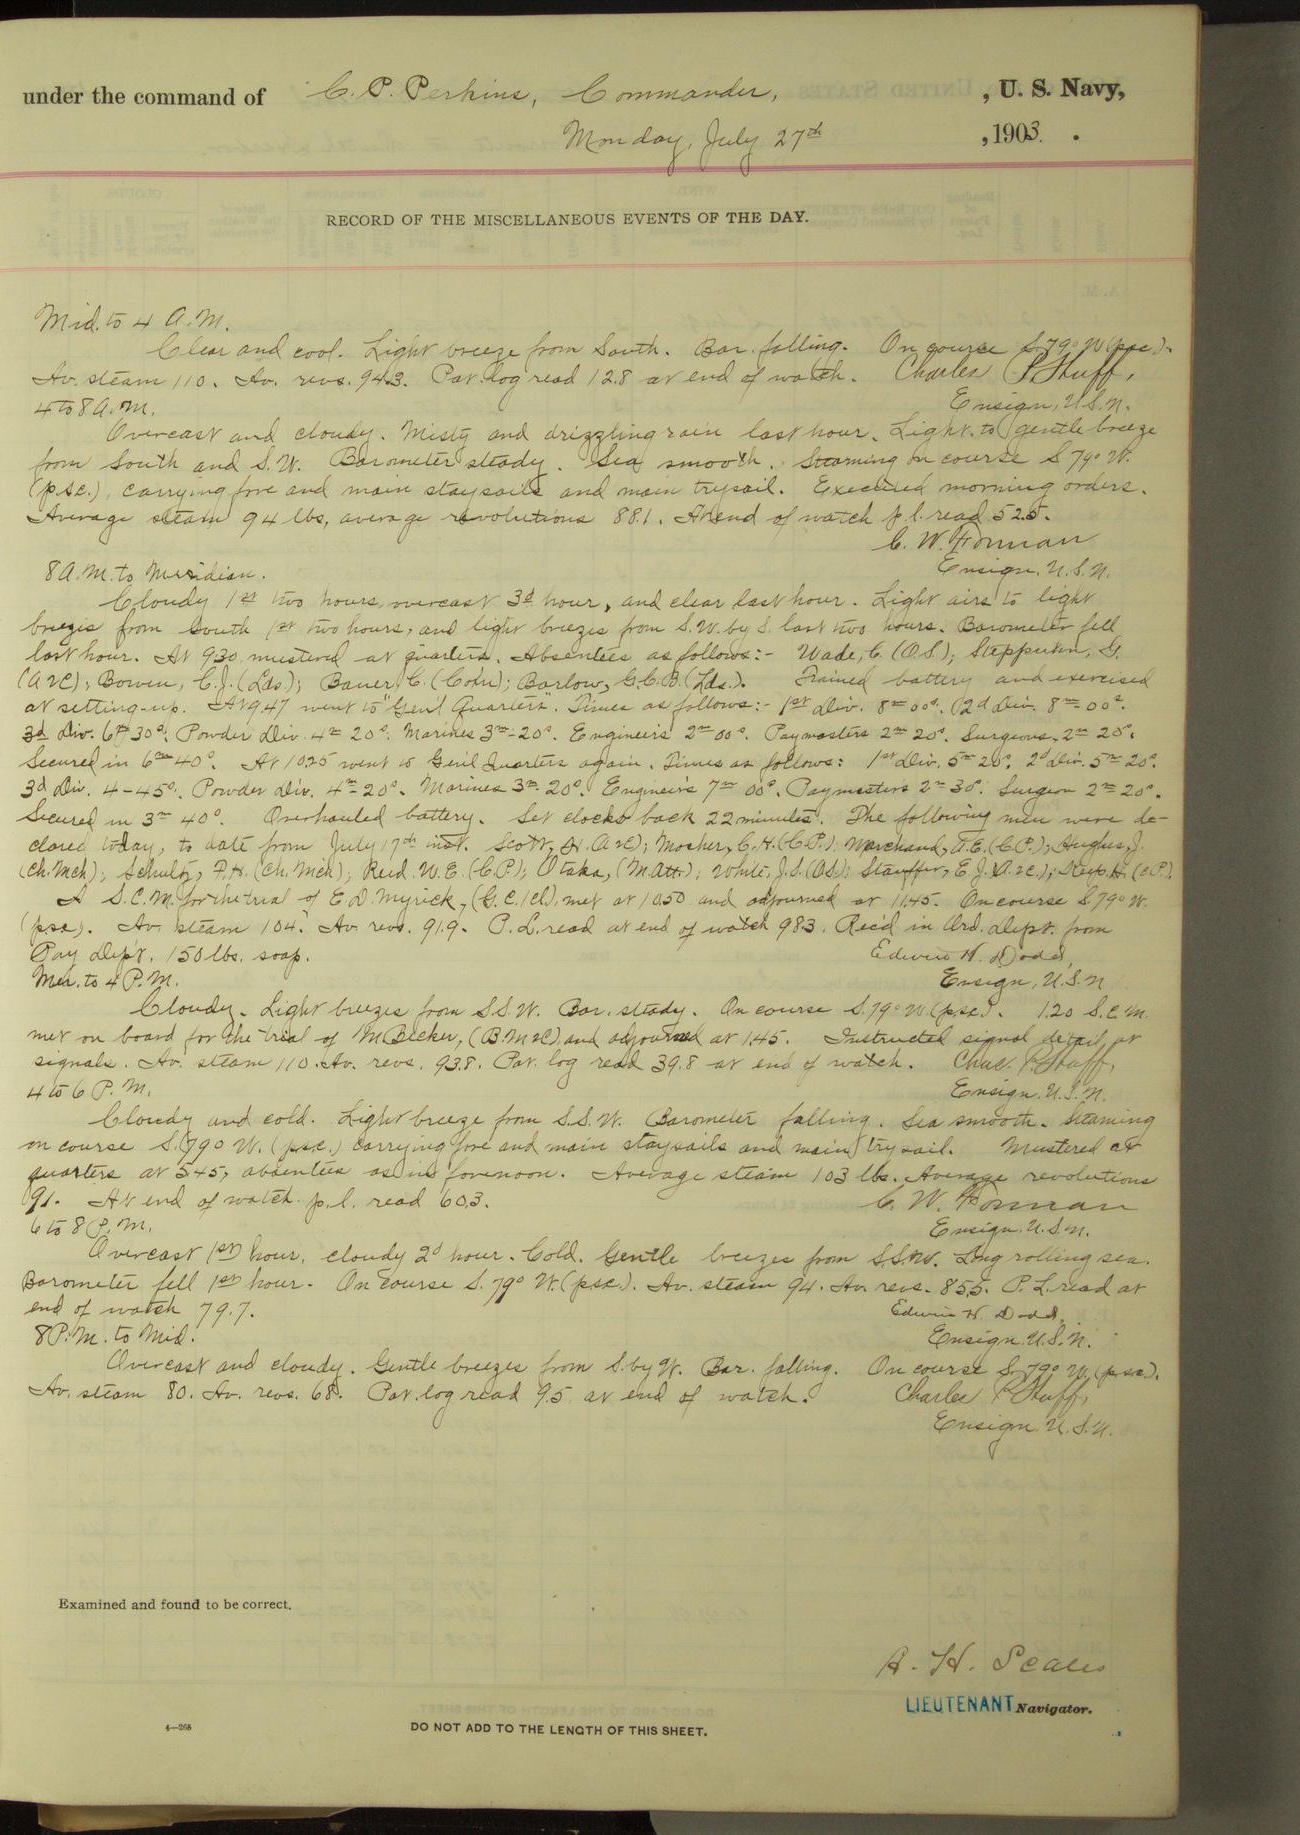 under the command of C. P. Perkins, Commander, , U. S. Navy,
Monday, July 27th , 1903.
RECORD OF THE MISCELLANEOUS EVENTS OF THE DAY.
Mid. to 4 A.M.
Clear and cool. Light breeze from South. Bar. falling. On course S 79° W (psc).
Av. steam 110. Av. revs. 94.3. Pat. log read 12.8 at end of watch. Charles P. Huff,
4 to 8 A.M. Ensign, U.S.N.
Overcast and cloudy. Misty and drizzling rain last hour. Light to gentle breeze
from South and S.W. Barometer steady. Sea smooth. Steaming on course S 79° W.
(p.s.c.), carrying fore and main staysails and main trysail. Executed morning orders.
Average steam 94 lbs, average revolutions 88.1. At end of watch p.l. read 52.5.
C. W. Forman
8 A.M. to Meridian. Ensign, U.S.N.
Cloudy 1st two hours, overcast 3d hour, and clear last hour. Light airs to light
breezes from South 1st two hours, and light breezes from S.W. by S. last two hours. Barometer fell
last hour. At 9.30 mustered at quarters. Absentees as follows:- Wade, C (O.S.); G.
(A2C); Bowen, C.J. (Lds.); Bauer, C. (Coxn); Barlow, G.C.B. (Lds.). Trained battery and exercised
at setting-up. At 9.47 went to "Gen'l Quarters. Times as follows:- 1st Div. 8m 00s. 2d Div. 8m 00s.
3d Div. 6m 30s. Powder Div. 4m 20s. Marines 3m-20s. Engineers 2m 00s. Paymasters 2m 20s. Surgeons. 2m 20s.
Secured in 6m 40s. At 10.25 went to Gen'l Quarters again. Times as follows: 1st Div. 5m 20s. 2d Div. 5m 20s.
3d Div. 4-45s. Powder Div. 4m 20s. Marines 3m 20s. Engineers 7m 00s. Paymasters 2m 30s. Surgeon 2m 20s.
Secured in 3m 40s. Overhauled battery. Set clocks back 22 minutes. The following men were de-
clared today, to date from July 17th inst. Scott, H. (A2C); Mosher, C.H. (C.P.); Marchand, A.E. (C.P.); Hughes, J.
(Ch. Mch); Schultz, F.H. (Ch. Mch); Reid. W.E. (C.P.); Otaka, (M.Att.); White, J.S. (O.S.); Stauffer, E.J. (A.2C.); H. (C.P.).
A S.C.M. for the trial of E.D. Myrick, (G.C. 1Cl), met at 10.50 and adjourned at 11.45. On course S 79° W.
(psc). Av. steam 104. Av. revs. 91.9. P.L. read at end of watch 98.3. Rec'd in Ord. Dept. from
Pay Dep't. 150 lbs. soap. Edwin H. Dodd,
Mer. to 4 P.M. Ensign, U.S.N
Cloudy. Light breezes from S.S.W. Bar. steady. On course S. 79° W (p.sc.). 1.20 S.C.M.
met on board for the trial of M Becker, (B.M2C) and adjourned at 1.45. Instructed signal detail at
signals. Av. steam 110. Av. revs. 93.8. Pat. log read 39.8 at end of watch. Chas. P. Huff,
4 to 6 P.M. Ensign U.S.N.
Cloudy and cold. Light breeze from S.S.W. Barometer falling. Sea smooth. Steaming
on course S. 79° W. (psc.) carrying fore and main staysails and main trysail. Mustered at
quarters at 5.45, absentees as in forenoon. Average steam 103 lbs. Average revolutions
91. At end of watch p.l. read 60.3. C. W. Forman
6 to 8 P.M. Ensign U.S.N.
Overcast 1st hour, cloudy 2d hour. Cold. Gentle breezes from S.S.W. Long rolling sea.
Barometer fell 1st hour. On course S. 79° W. (psc). Av. steam 94. Av. revs. 85.5. P.L. read at
end of watch 79.7. Edwin H. Dodd,
8 P.M. to Mid. Ensign. U.S.N.
Overcast and cloudy. Gentle breezes from S. by W. Bar. falling. On course S. 79° W. (p.sc).
Av. steam 80. Av. revs. 68. Pat. log read 9.5 at end of watch. Charles P. Huff,
Ensign U.S.N.
Examined and found to be correct.
A. H. Scales
LIEUTENANT Navigator.
4—268
DO NOT ADD TO THE LENGTH OF THIS SHEET.